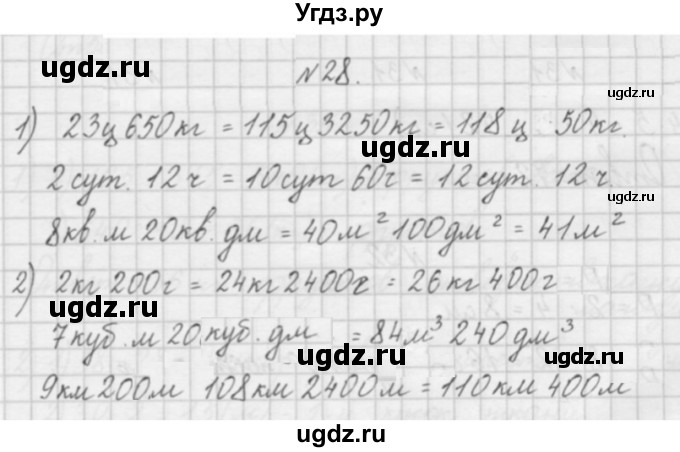 Угдз.ру
ugdz.ru
№28.
ugdz.ru
1) 23ц 650кг = 115ц 3250кг = 118ц 50кг.
ugdz.ru
2сут. 12ч = 10сут 60ч = 12сут. 12ч.
8кв.м 20кв.дм = 40м² 100дм² = 41м²
2) 2кг 200г = 24кг 2400г = 26кг 400г
ugdz.ru
7куб.м 20куб.дм = 84м³ 240дм³
ugdz.ru
ugdz.ru
9км 200м 108км 2400м = 110км 400м
ugdz.ru